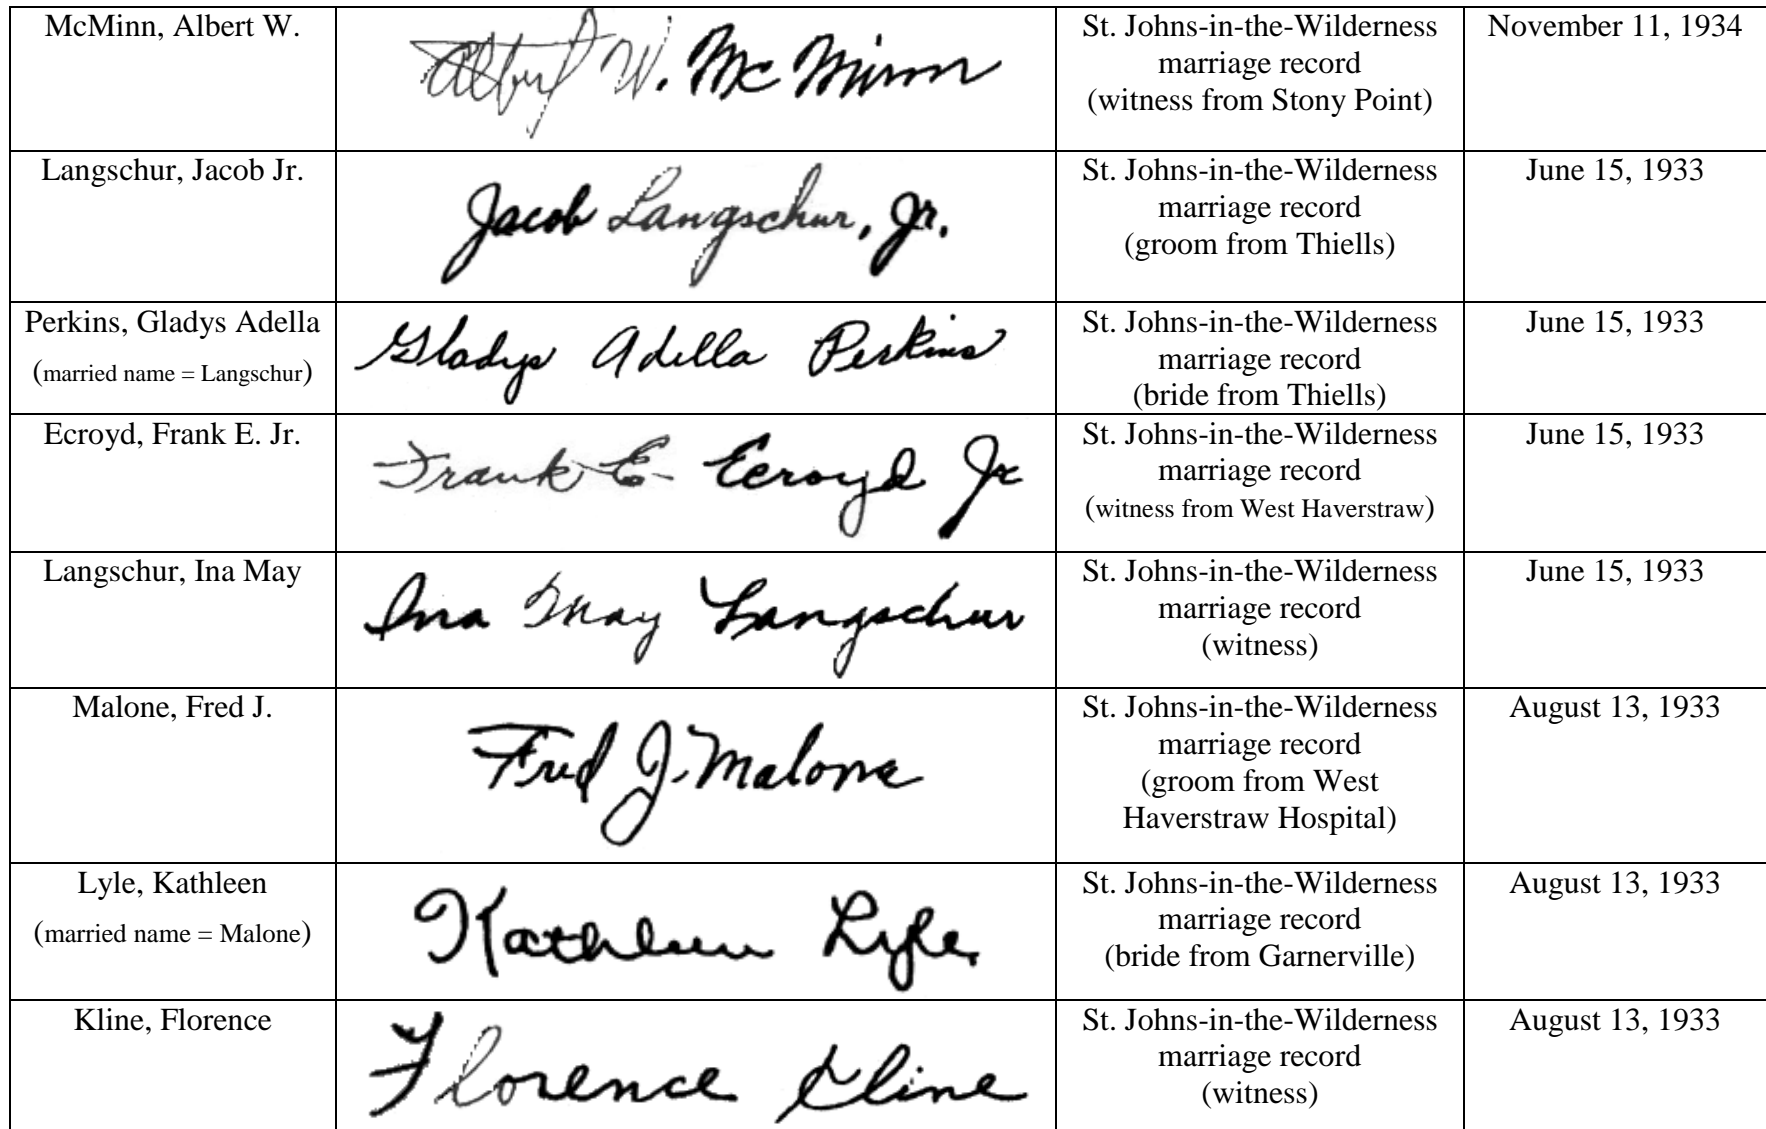 McMinn, Albert W.
Albert W. McMinn
St. Johns-in-the-Wilderness
marriage record
(witness from Stony Point)
November 11, 1934
Langschur, Jacob Jr.
Jacob Langschur, Jr.
St. Johns-in-the-Wilderness
marriage record
(groom from Thiells)
June 15, 1933
Perkins, Gladys Adella
(married name = Langschur)
Gladys Adella Perkins
St. Johns-in-the-Wilderness
marriage record
(bride from Thiells)
June 15, 1933
Ecroyd, Frank E. Jr.
Frank E. Ecroyd Jr
St. Johns-in-the-Wilderness
marriage record
(witness from West Haverstraw)
June 15, 1933
Langschur, Ina May
Ina May Langschur
St. Johns-in-the-Wilderness
marriage record
(witness)
June 15, 1933
Malone, Fred J.
Fred J. Malone
St. Johns-in-the-Wilderness
marriage record
(groom from West
Haverstraw Hospital)
August 13, 1933
Lyle, Kathleen
(married name = Malone)
Kathleen Lyle
St. Johns-in-the-Wilderness
marriage record
(bride from Garnerville)
August 13, 1933
Kline, Florence
Florence Kline
St. Johns-in-the-Wilderness
marriage record
(witness)
August 13, 1933